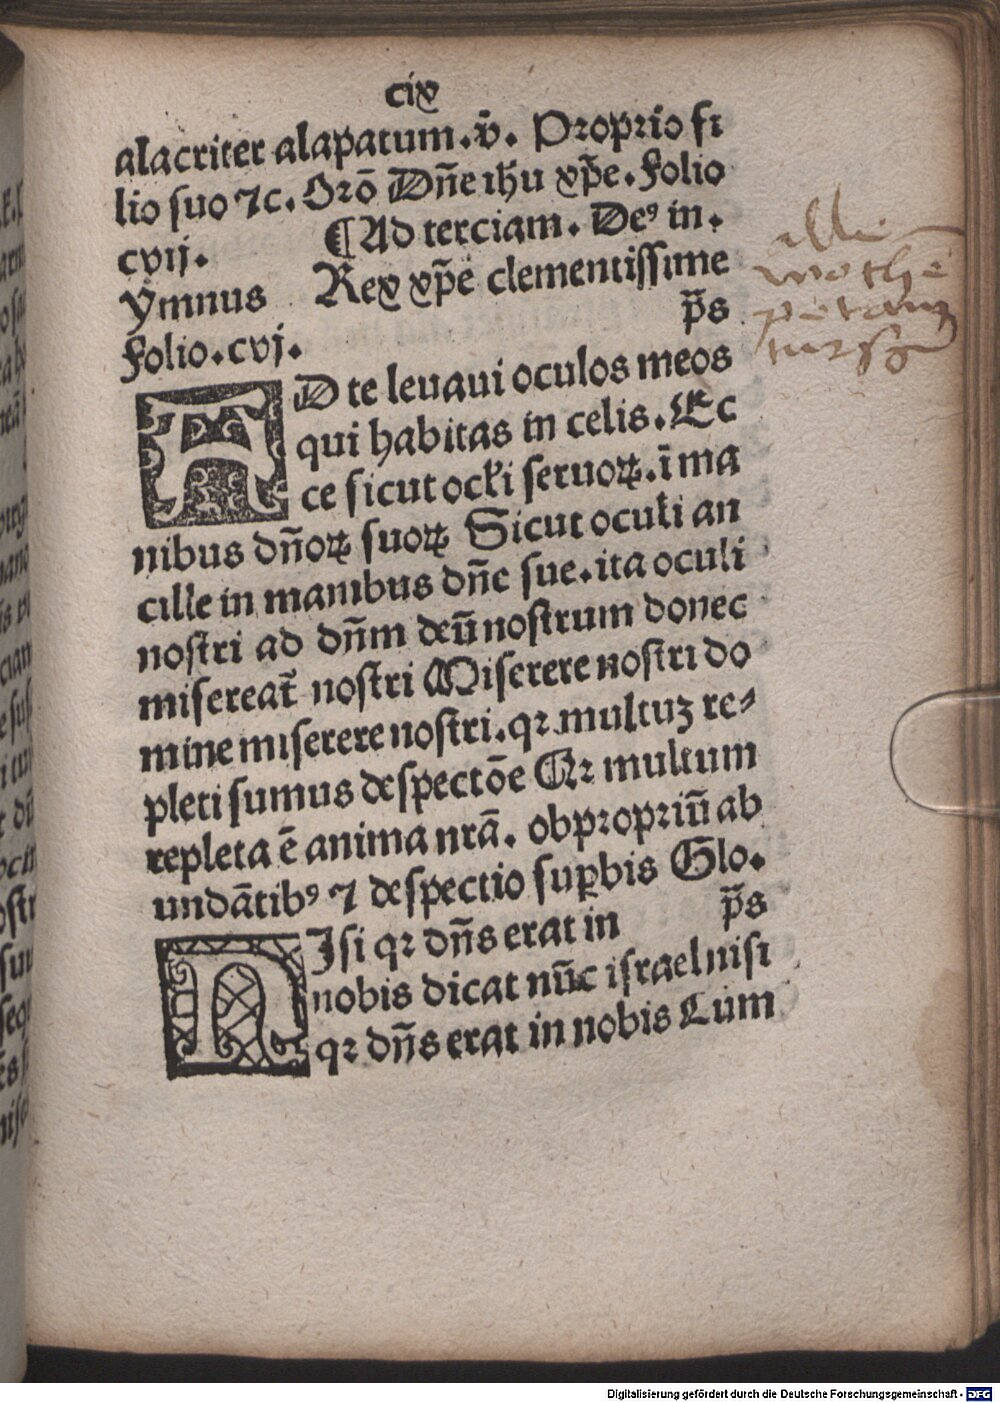 cix
alacriter alapatum. v̄. Proprio fi
lio suo ⁊c. Orō Dn̄e ihu xp̄e. Folio
cvij. ¶ Ad terciam. Deꝰ in.
Ymnus Rex xp̄e clementissime
Folio. cvj. p̄s
AD te leuaui oculos meos
qui habitas in celis. Ec
ce sicut ocl̄i seruoꝝ. ī ma
nibus dn̄oꝝ suoꝝ Sicut oculi an
cille in manibus dn̄e sue. ita oculi
nostri ad dn̄m deū nostrum donec
misereat̄ nostri Miserere nostri do
mine miserere nostri. qꝛ multuz re⸗
pleti sumus despectōe Qꝛ multum
repleta ē anima nrā. obpropriū ab
undātibꝰ ⁊ despectio suꝑbis Glo.
NIsi qꝛ dn̄s erat in p̄s
nobis dicat nūc israel nisi
qꝛ dn̄s erat in nobis Cum
Digitalisierung gefördert durch die Deutsche Forschungsgemeinschaft - DFG